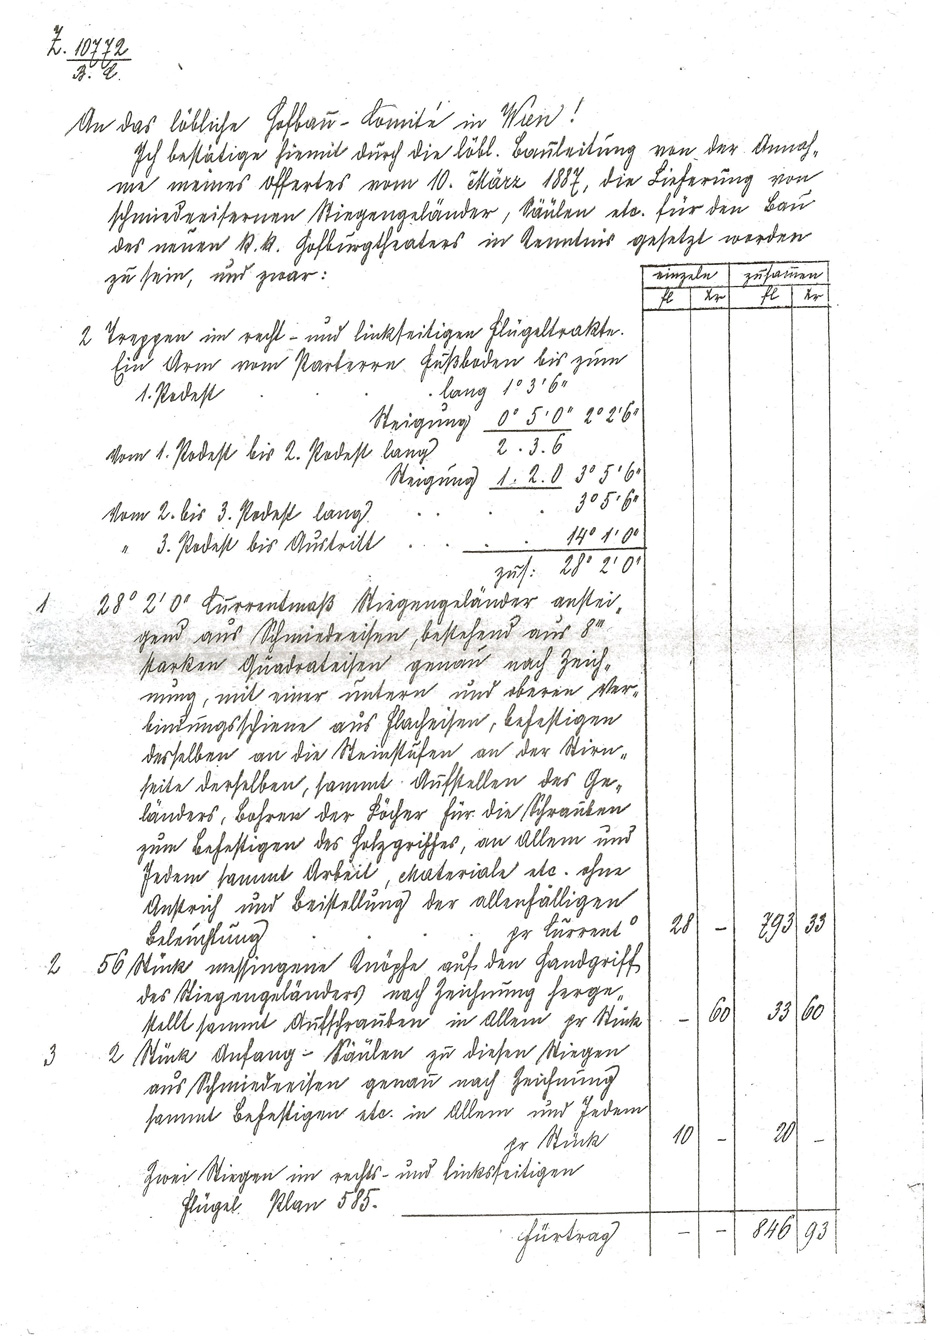 Z. 10772
B. C.
An das löbliche Hofbau-Comité in Wien!
Ich bestätige hiemit durch die löbl. Bauleitung von der Annah-
me meines Offertes vom 10. März 1887, die Lieferung von
schmiedeeisernen Stiegengeländer, Säulen etc. für den Bau
des neuen k.k. Hofburgtheaters in Kenntnis gesetzt worden
zu sein, und zwar:
einzeln zusammen
fl kr fl kr
2 Treppen im recht- und linkseitigen Flügeltrakte.
Ein Arm vom Parterre Fußboden bis zum
1. Podest . . . lang 1° 3' 6"
Steigung 0° 5' 0" 2° 2' 6"
Vom 1. Podest bis 2. Podest lang 2. 3. 6
Steigung 1. 2. 0 3° 5' 6"
Vom 2. bis 3. Podest lang . . . . 3° 5' 6"
" 3. Podest bis Austritt . . . . 14° 1' 0"
zus: 28° 2' 0"
1 28° 2' 0" Currentmaß Stiegengeländer anstei-
gend aus Schmiedeeisen, bestehend aus 8'''
starken Quadrateisen genau nach Zeich-
nung, mit einer untern und oberen Ver-
bindungsschiene aus Flacheisen, befestigen
desselben an die Steinstufen an der Stirn-
seite derselben, sammt Aufstellen des Ge-
länders, Bohren der Löcher für die Schrauben
zum Befestigen des Holzgriffes, an Allem und
Jedem sammt Arbeit, Materiale etc. ohne
Anstrich und Beistellung der allenfälligen
Beleuchtung . . . pr Current° 28 - 793 33
2 56 Stück messingene Knöpfe auf den Handgriff
des Stiegengeländers nach Zeichnung herge-
stellt sammt Aufschrauben in Allem pr Stück - 60 33 60
3 2 Stück Anfang-Säulen zu diesen Stiegen
aus Schmiedeeisen genau nach Zeichnung
sammt Befestigen etc. in Allem und Jedem
pr Stück 10 - 20 -
Zwei Stiegen im rechts- und linksseitigen
Flügel Plan 585.
Fürtrag - - 846 93